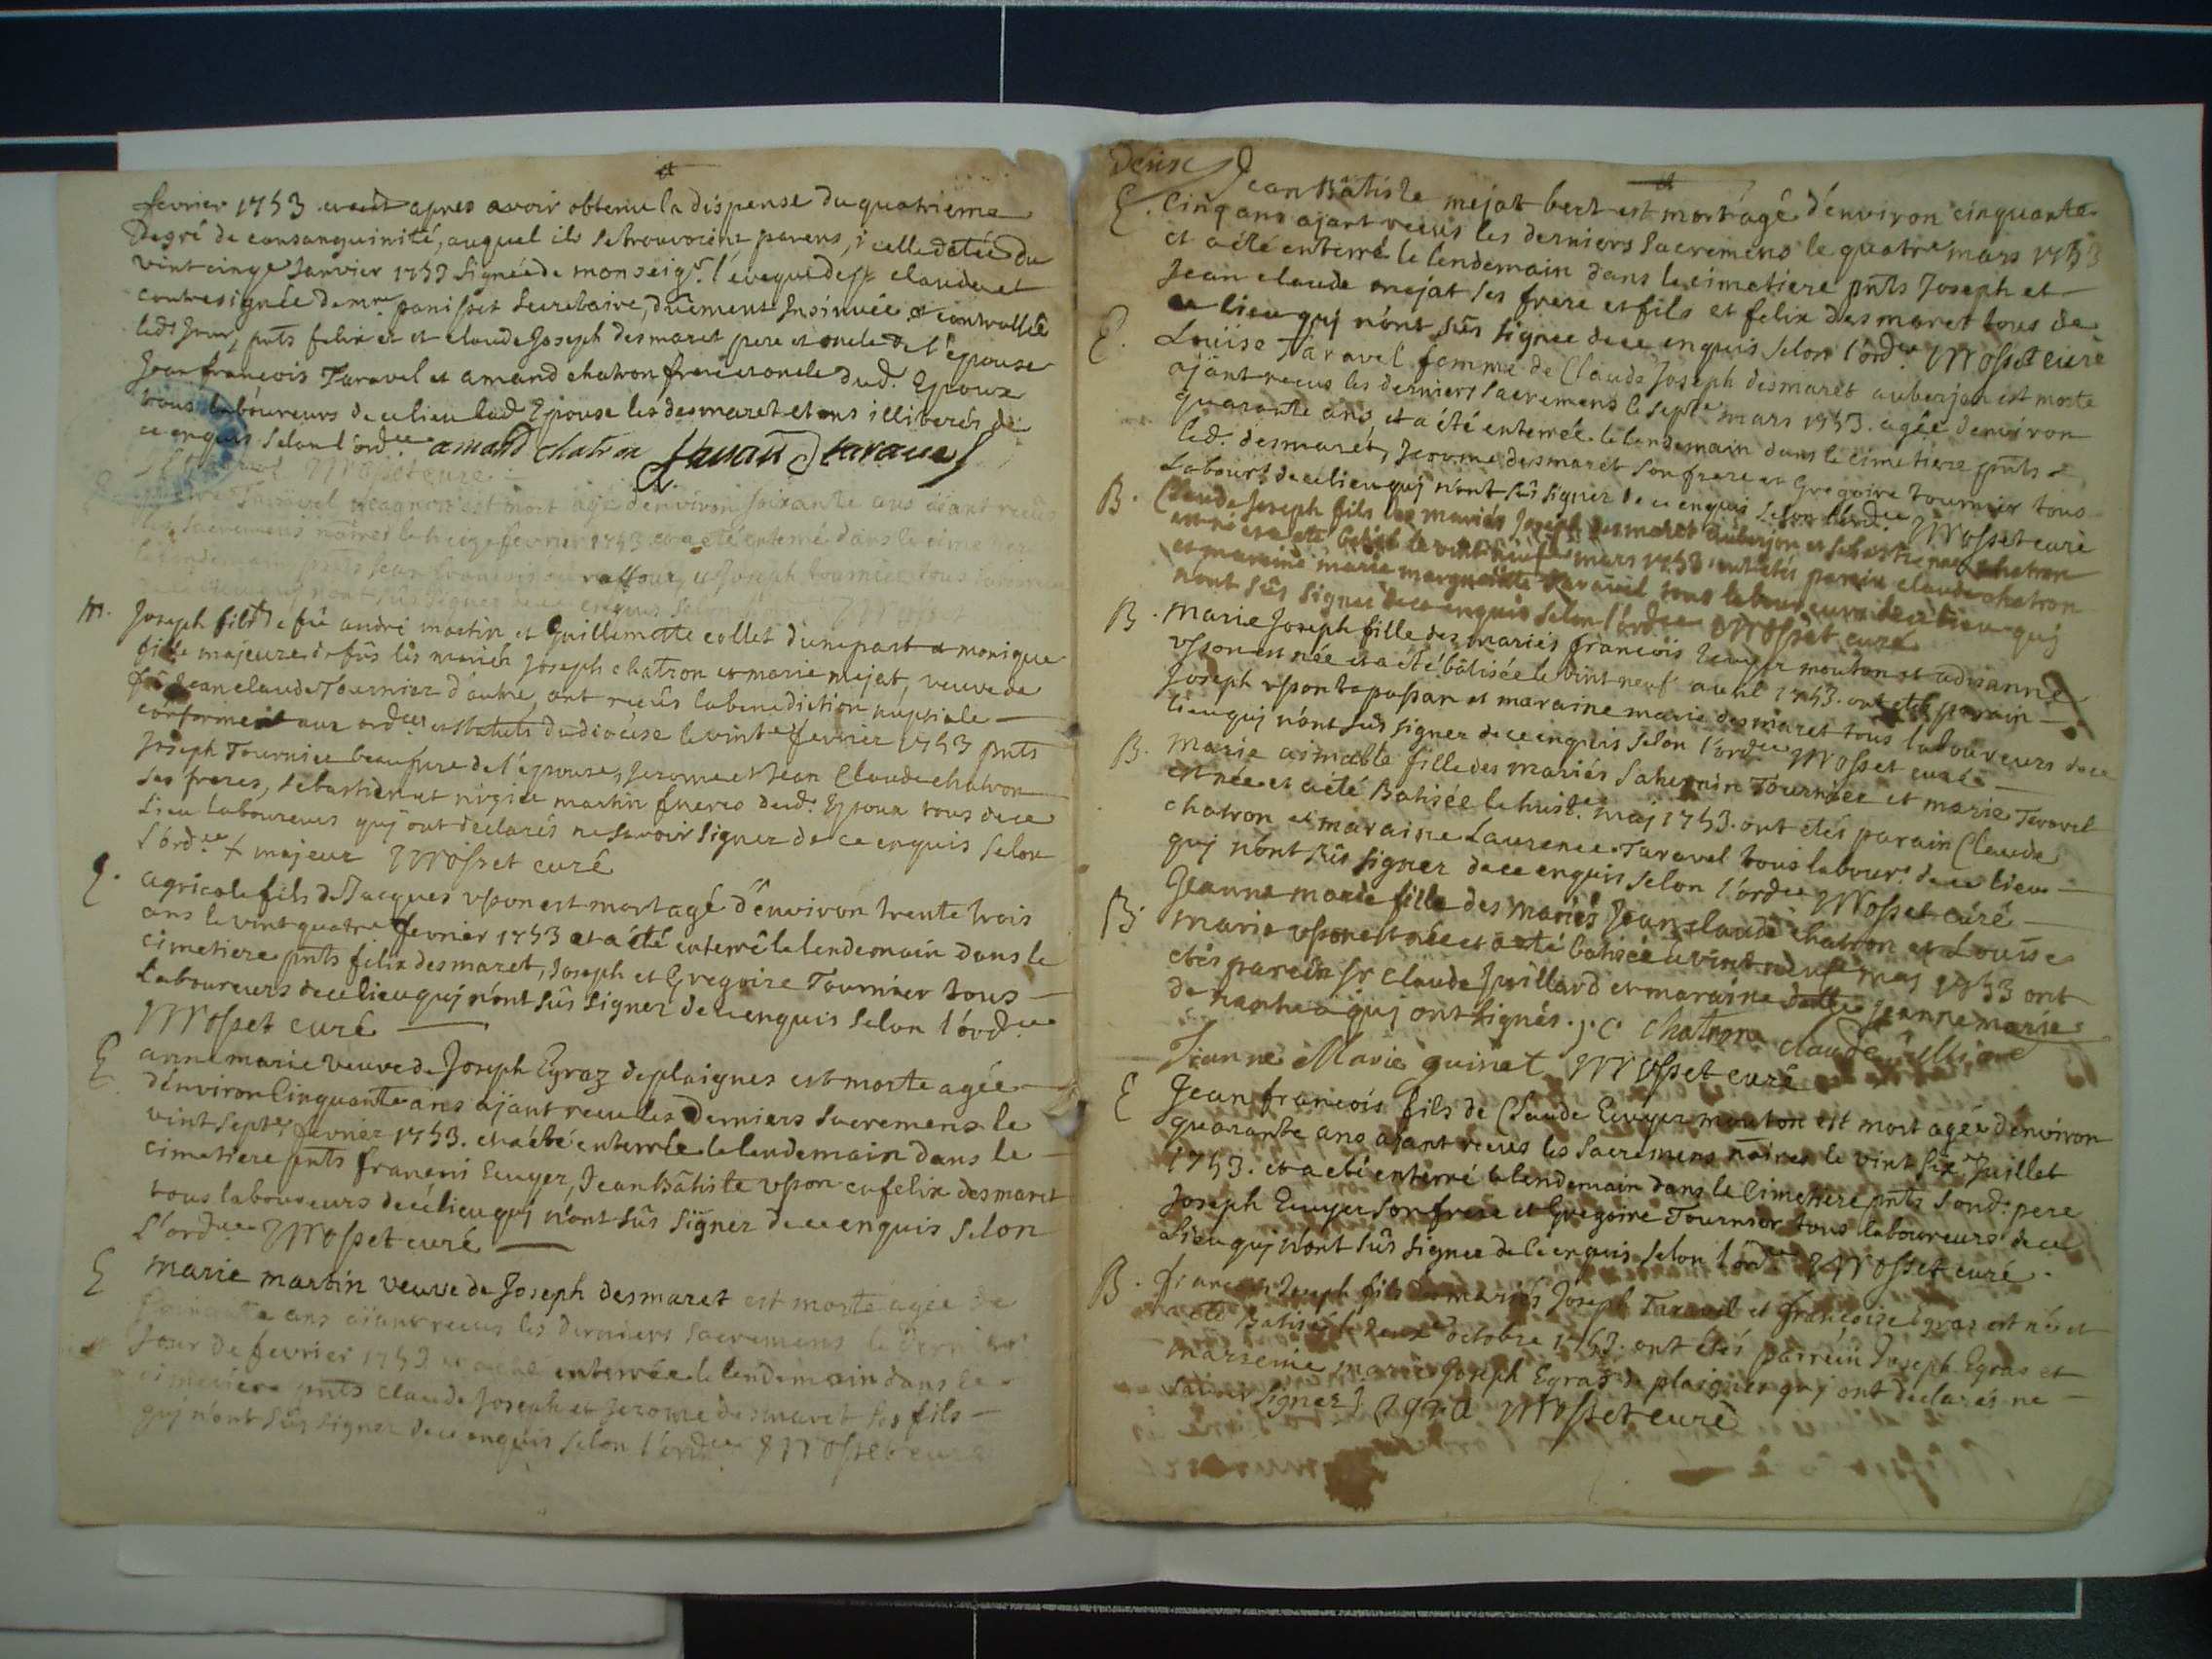 fevrier 1753 apres avoir obtenu la dispense du quatrieme
Degré de consanguinité, auquel ils se trouvoient parens, icelle datée du
vint cinqe Janvier 1753 signée de monseigr. l'eveque de st claude et
contresignée de mr. panisset secretaire, düement insinuée et controllée
led. Jour, pnts felix et claude Joseph desmaret pere et oncle de l'epouse
Jean françois Taravel et amand chatron frere et oncle dud. Epoux
tous laboureurs de ce lieu lad. Epouse les desmaret et ans illiterés de
ce enquis selon l'ordce amand chatron taravel
Mosset curé
Taravel est mort agé d'environ soixante ans aiant recûs
les sacremens nāires le treize fevrier 1753. et a été enterré dans le cimetiere
le lendemain pnts Jean françois raffour, et Joseph tournier tous
de ce lieu quj n'ont sûs signer de ce enquis selon Mosset
M. Joseph fils de fû andré martin et Guillemette collet d'une part et monique
fille majeure de fûs les mariés Joseph chatron et marie mejat, veuve de
fû Jean claude Tournier d'autre, ont reçûs la benediction nuptiale
conformement aux ordces et statuts du diocese le vinte fevrier 1753 pnts
Joseph Tournier beaufrere de l'épouse, Jerome et Jean Claude chatron
ses freres, sebastien et martin freres dud. Epoux tous de ce
Lieu laboureurs quj ont déclarés ne savoir signer de ce enquis selon
l'ordce + majeur Mosset curé
E. agricole fils de Jacques vpon est mort agé d'environ trente trois
ans le vint quatre fevrier 1753 et a été enterré le lendemain dans le
cimetiere pnts felix desmaret, Joseph et Gregoire Tournier tous
Laboureurs de ce lieu quj n'ont sûs signer de ce enquis selon l'ordce
Mosset curé
E anne marie veuve de Joseph Egraz de plaignes est morte agée
d'environ Cinquante ans ajant recu les Derniers sacremens le
vint septe fevrier 1753. et a été enterrée le lendemain dans le
cimetiere pnts françois Ecuyer, Jean Bâtiste vpon et felix desmaret
tous laboureurs de ce lieu quj n'ont sûs signer de ce enquis selon
L'ordce Mosset curé
E marie martin veuve de Joseph desmaret est morte agée de
soixante ans aiant recus les derniers sacremens le dernier
Jour de fevrier 1753 et a été enterrée le lendemain dans le
cimetiere pnts claude Joseph et Jerome desmaret ses fils
quj n'ont sûs signer de ce enquis selon l'ordce Mosset curé
Deux
E. Jean Bâtiste mejat bert est mort agé d'environ cinquante
Cinq ans ajant recûs les derniers sacremens le quatre mars 1753
et a été enterré le lendemain dans le cimetiere pnts Joseph et
Jean claude mejat ses frere et fils et felix desmaret tous de
ce lieu quj n'ont sûs signer de ce enquis selon l'ordce Mosset curé
E. Louise Taravel femme de Claude Joseph desmaret auberjon est morte
ajant recus les derniers sacremens le septe mars 1753. agée d'environ
quarante ans, et a été enterrée le lendemain dans le cimetiere pnts
led. desmaret, Jerome desmaret son frere et Gregoire tournier tous
Labours de ce lieu quj n'ont sûs signer de ce enquis selon l'ordce Mosset curé
B. Claude Joseph fils des mariés Joseph desmaret auberjon et chatron
est né et a été batisé le vint neufe mars 1753 ont étés parain claude chatron
et maraine marie marguerite Taravel tous laboureurs de ce lieu quj
n'ont sûs signer de ce enquis selon l'ordce Mosset curé
B. Marie Joseph fille des mariés françois Ecuyer mouton et adrianne
vpon est née et a été bâtisée le vint neuf avril 1753. ont etés parain
Joseph vpon tapassan et maraine marie desmaret tous laboureurs de ce
lieu quj n'ont sûs signer de ce enquis selon l'ordce Mosset curé
B. Marie aimable fille des mariés Saturnin Tournier et marie Taravel
est née et a été Batisée le huite. maj 1753. ont étés parain Claude
chatron et maraine Laurence Taravel tous labours. de ce lieu
quj n'ont sûs signer de ce enquis selon l'ordce Mosset curé
B. Jeanne marie fille des mariés Jean claude chatron et Louise
marie vpon est née et a été batisée le vint neufe maj 1753 ont
etés parein sr claude Juillard et maraine delle jeanne marie
de nantua quj ont signés. j. c. chatron claude juilliard
Jeanne Marie guinet Mosset curé
E Jean francois fils de Claude Ecuyer mouton est mort agé d'environ
quarante ans aiant recus les sacremens nāires le vint sixe Juillet
1753. et a été enterré le lendemain dans le Cimetiere pnts sond. pere
Joseph Ecuyer son frere et Gregoire Tournier tous laboureurs de ce
Lieu quj n'ont sûs signer de ce enquis selon l'ordce Mosset curé
B. francois Joseph fils des mariés Joseph Taravel et françoise Egras est né et
a été Batisé le deuxe octobre 1753. ont étés parrein Joseph Egras et
marreine marie Joseph Egraz de plaignes quj ont declarés ne
savoir signer J egra Mosset curé